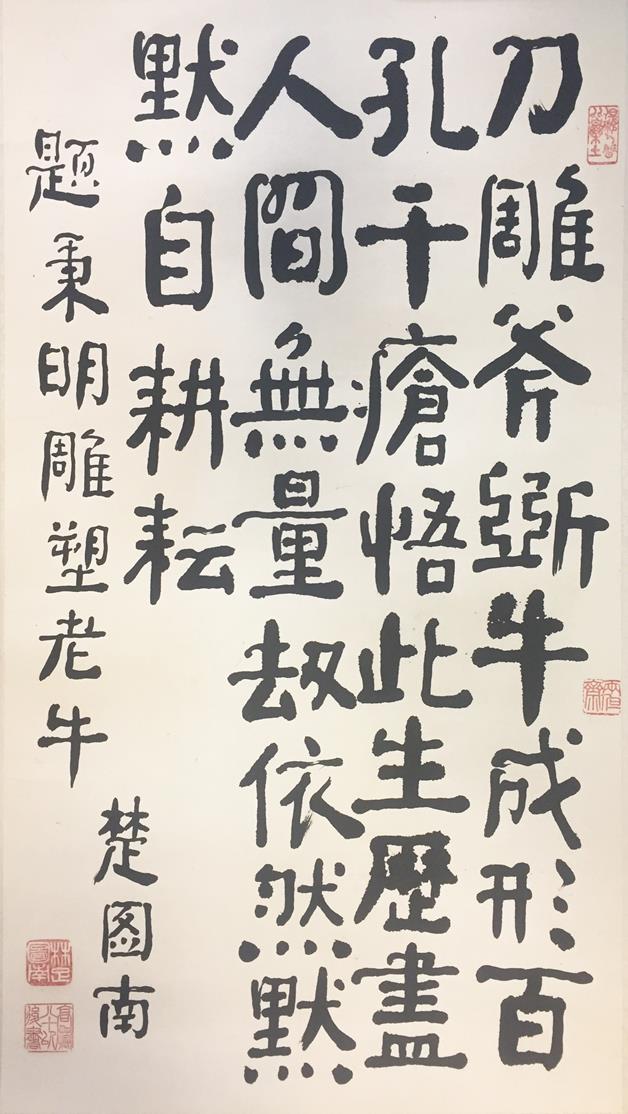 刀雕斧斵牛成形百
孔千瘡悟此生歷盡
人間無量刼依然默
默自耕耘
題秉明雕塑老牛
楚图南
楚圖南